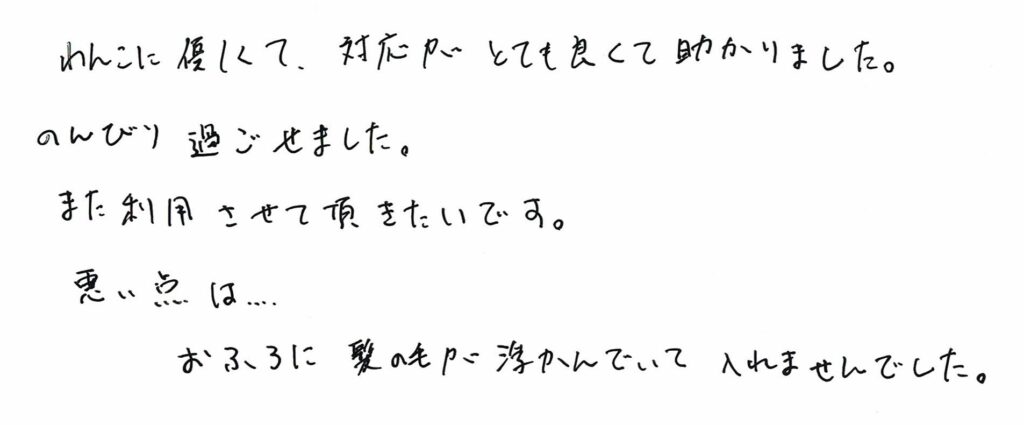 わんこに優しくて、対応が とても良くて助かりました。
のんびり過ごせました。
また利用させて頂きたいです。
悪い点は....
おふろに髪の毛が浮かんでいて入れませんでした。